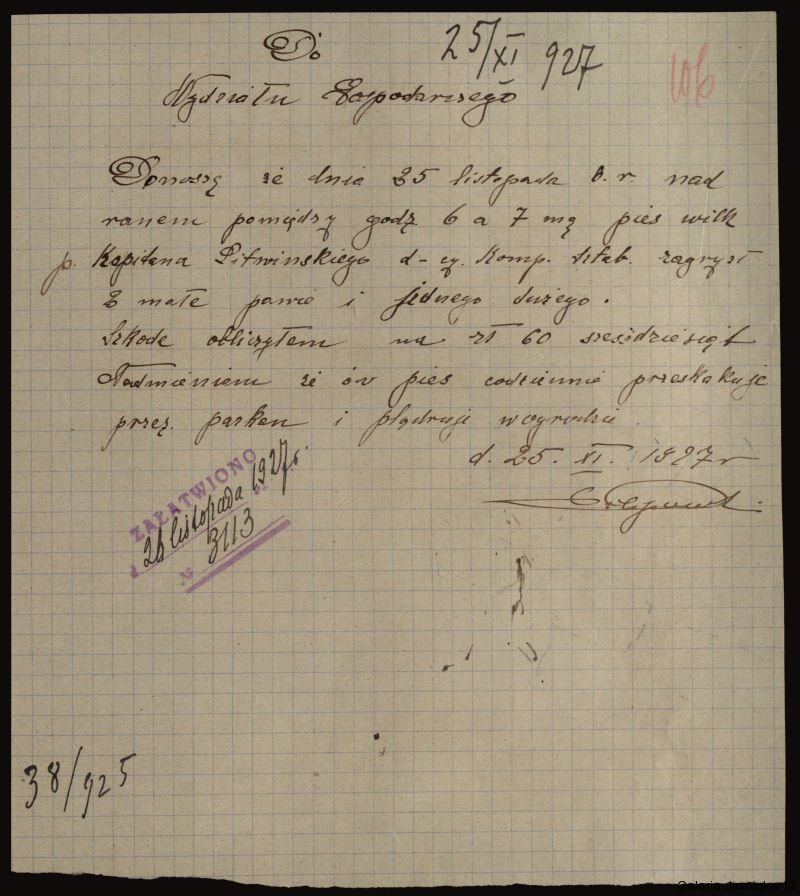 Do
25/XI 927
106
Wydziału Gospodarczego
Donoszę że dnia 25 listopada b. r. nad
ranem pomiędzy godz 6 a 7 mą pies wilk
p. Kapitana Litwinskiego d-cy. Komp. sztab. zagryzł
2 małe pawie i jednego dużego.
Szkode obliczyłem na zł 60 sześździesiąt
Nadmieniem że ów pies codziennie przeskakuje
przez parkan i plądruje w ogrodzie.
d. 25. XI. 1927 r
ZAŁATWIONO
d. 26 listopada 1927 r.
№ 3113
38/925
Galeria